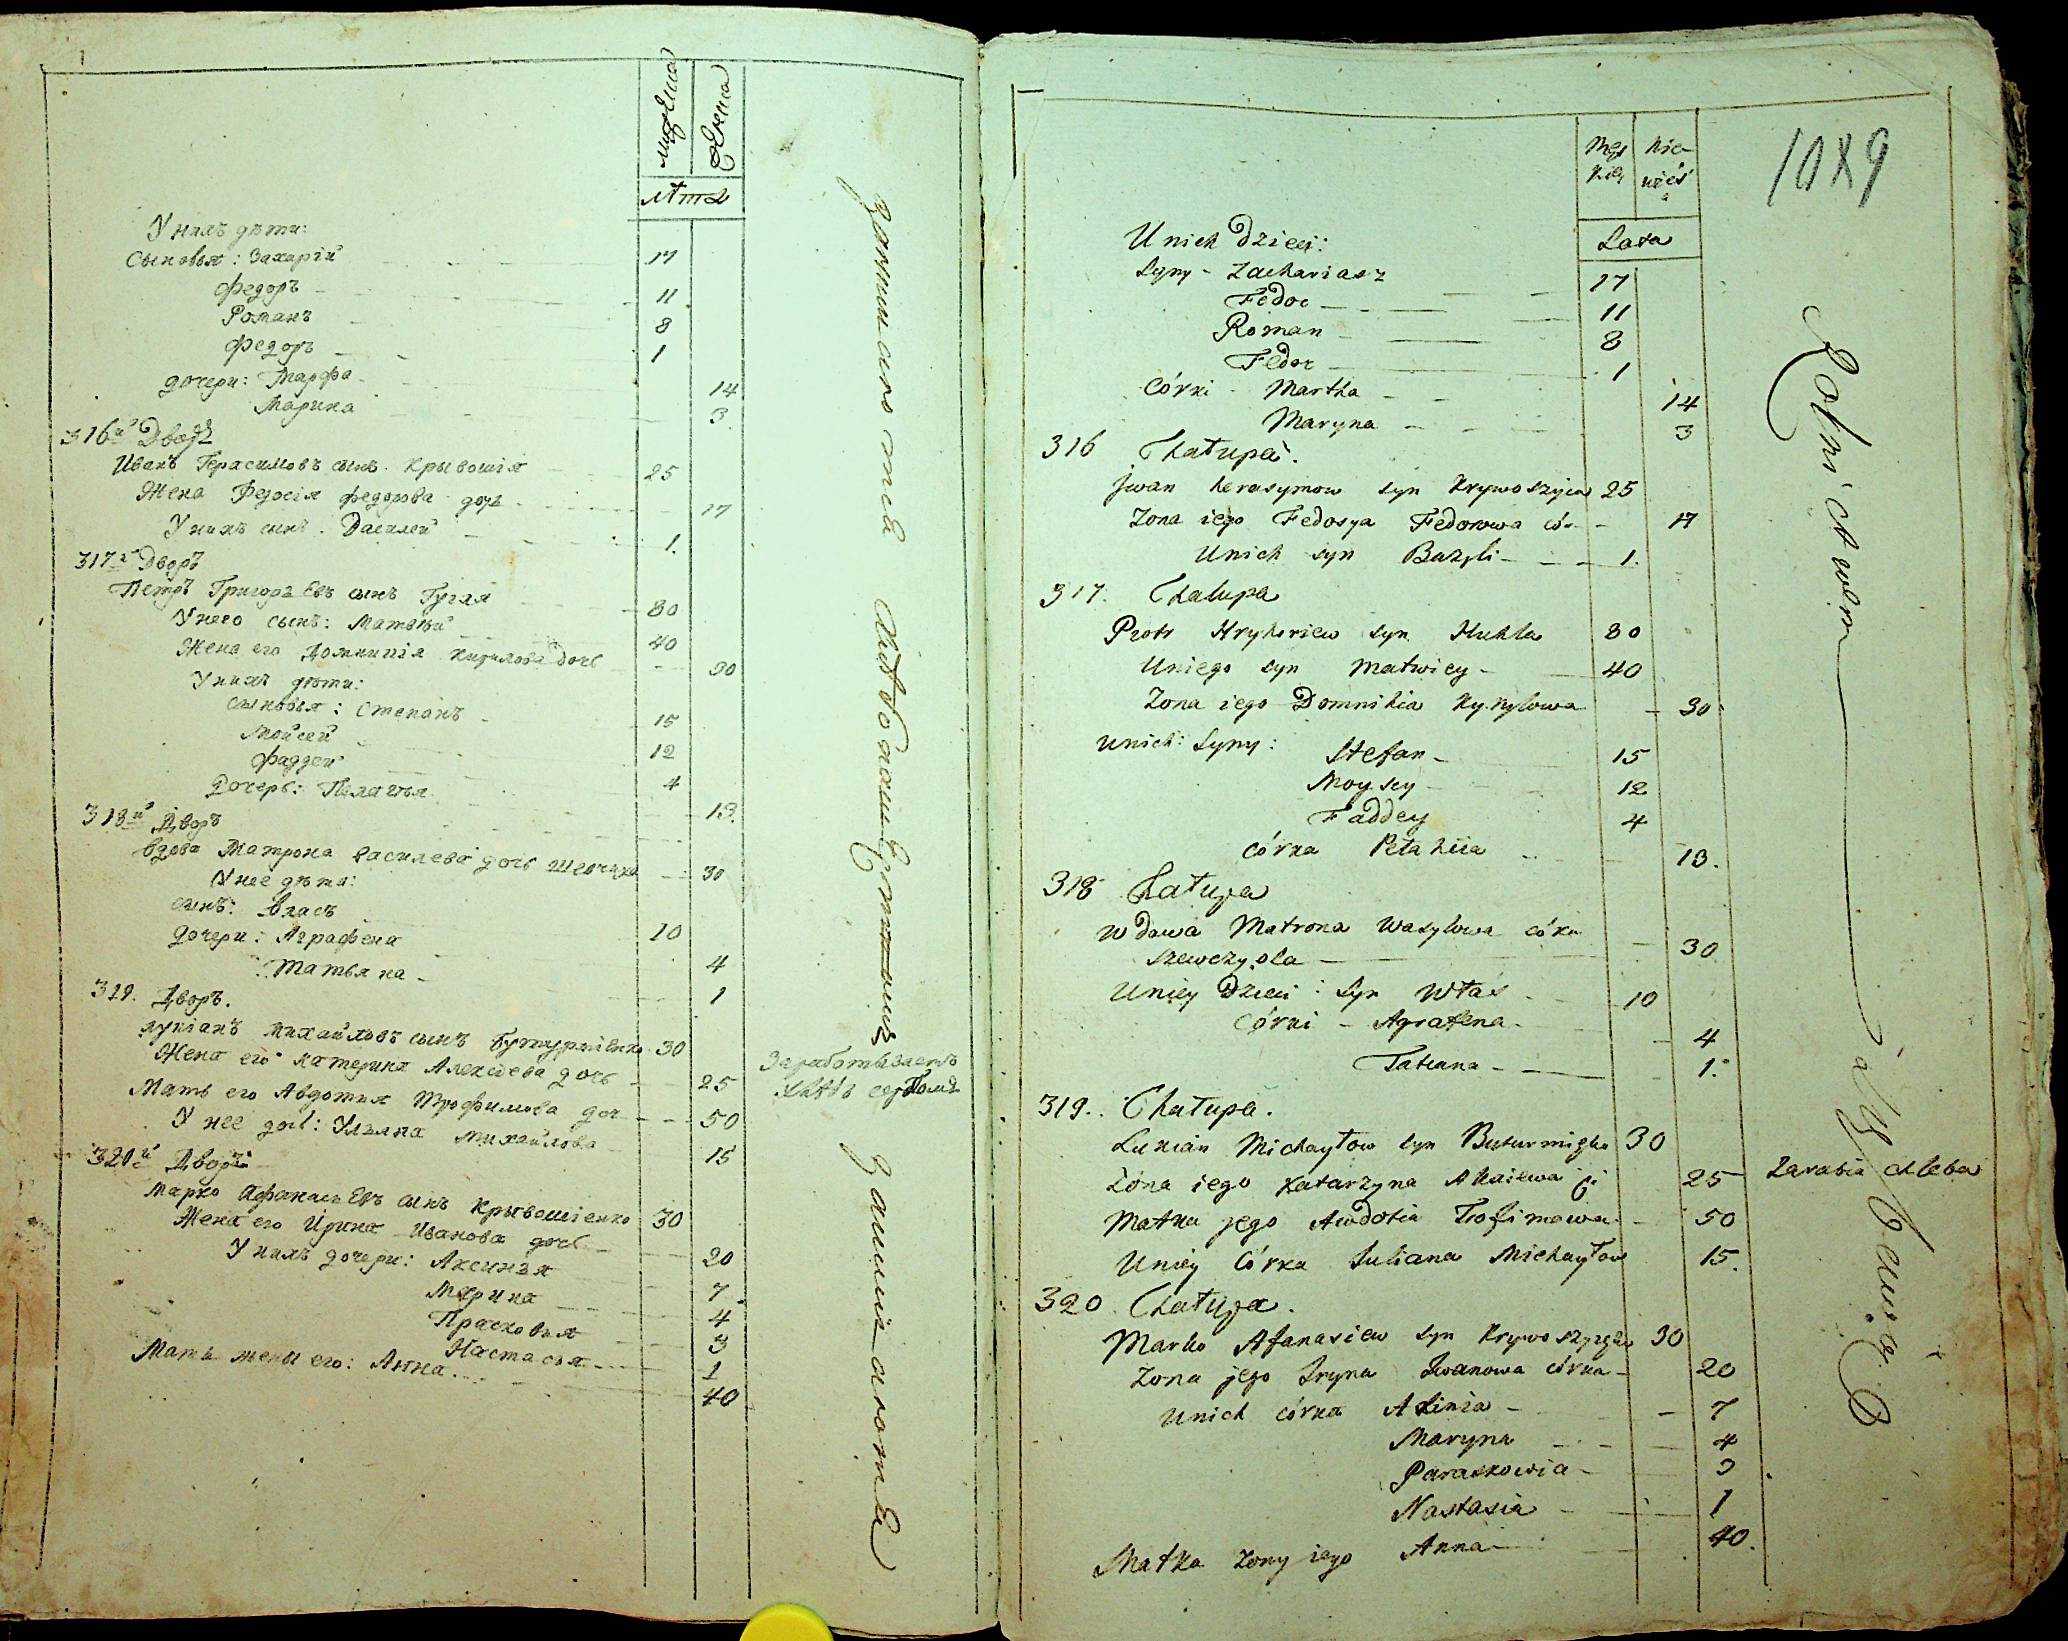 мужска
женска
лѣта
У нихъ дѣти:
Сыновья: Захарій 17
Федоръ 11
Романъ 8
Федоръ 1
дочери: Марфа 14
Марина 3
316й Дворъ
Иванъ Герасимовъ сынъ Крывошія 25
Жена Федосія Федорова дочь 17
У нихъ сынъ Василей 1.
317й Дворъ
Петръ Григорьевъ сынъ Гугля 80
У него сынъ: Матвѣй 40
Жена его Домникія Кирилова дочь 30
У нихъ дѣти:
сыновья: Степанъ 15
Мойсей 12
Фаддей 4
Дочерь: Пелагья 13.
318й Дворъ
вдова Матрона Василева дочь 30
У нее дѣти:
сынъ: Власъ 10
дочери: Аграфена 4
Татьяна 1
319. Дворъ.
Лукіанъ Михайловъ сынъ 30
Жена его Катерина Алексѣева дочь 25
Мать его Авдотья Трофимова доч 50
У нее дочь: Ульяна Михайлова 15
320й Дворъ
Марко Афанасьевъ сынъ Крывошіенко 30
Жена его Ирина Иванова дочь 20
У нихъ дочери: Аксинья 7
Марина 4
Прасковья 3
Настасья 1
Мать жены его: Анна 40
Зарабатываетъ
хлѣбъ
1089
Męz
kiey
Nie-
wieś
a
Lata
U nich Dzieci:
Syny - Zachariasz 17
Fedor 11
Roman 8
Fedor 1
Córki - Martha 14
Maryna 3
316 Chałupa.
Jwan Herasymow syn Krywoszyia 25
Zona iego Fedosya Fedorowa có 17
U nich syn Bazyli 1.
317. Chałupa
Piotr Hryhoriew syn Huhla 80
U niego syn Matwiey 40
Zona iego Domnikia Kyryłowa 30
U nich: Syny: Stefan 15
Moysey 12
Faddey 4
Córka Pełahiia 13.
318 Chałupa
Wdowa Matrona Wasylowa córka
30
U niey Dzieci: Syn Włas 10
Córki - Agrafena 4
Tatiana 1.
319. Chałupa.
Lukian Michayłow syn 30
Zona iego Katarzyna 25
Zarabia chleba
Matka jego Awdotia Trofimowa 50
U niey Córka Juliana Michayłow 15.
320. Chałupa.
Marko Afanasiew syn 30
Zona jego Iryna Iwanowa córka 20
U nich córka Axinia 7
Maryna 4
Paraskowia 3
Nastasia 1
Matka zony iego Anna 40.
Rolnictwem